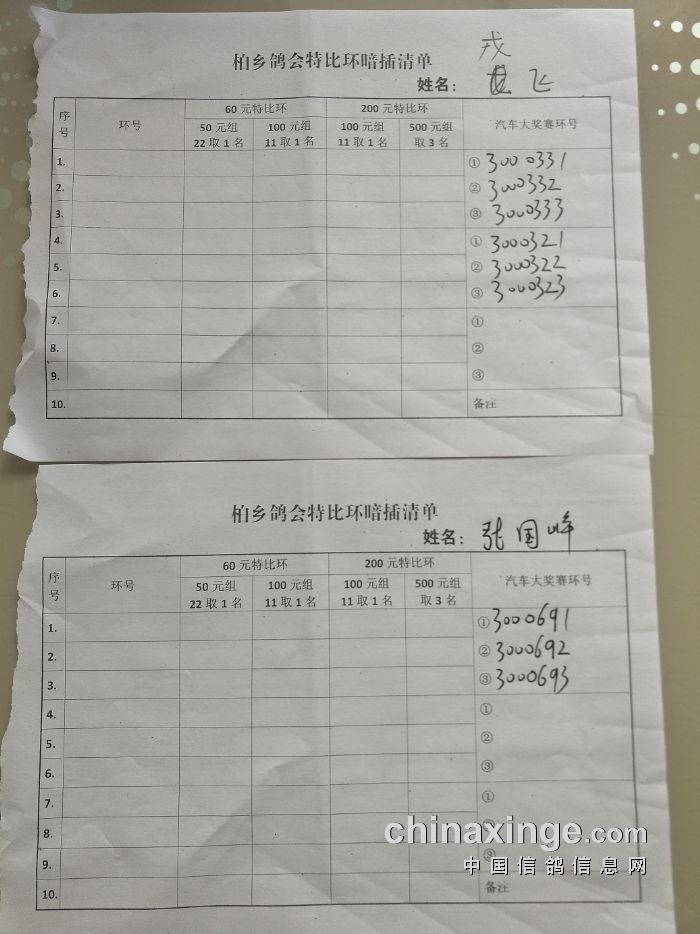 柏乡鸽会特比环暗插清单
戎
姓名： 飞
序号 环号 60 元特比环 200 元特比环 汽车大奖赛环号
50 元组 100 元组 100 元组 500 元组
22 取 1 名 11 取 1 名 11 取 1 名 取 3 名
1. ① 3000331
2. ② 3000332
3. ③ 3000333
4. ① 3000321
5. ② 3000322
6. ③ 3000323
7. ①
8. ②
9. ③
10. 备注
柏乡鸽会特比环暗插清单
姓名： 张国峰
序号 环号 60 元特比环 200 元特比环 汽车大奖赛环号
50 元组 100 元组 100 元组 500 元组
22 取 1 名 11 取 1 名 11 取 1 名 取 3 名
1. ① 3000691
2. ② 3000692
3. ③ 3000693
4. ①
5. ②
6. ③
7. ①
8. ②
9. ③
10. 备注
chinaxinge.com
中国信鸽信息网